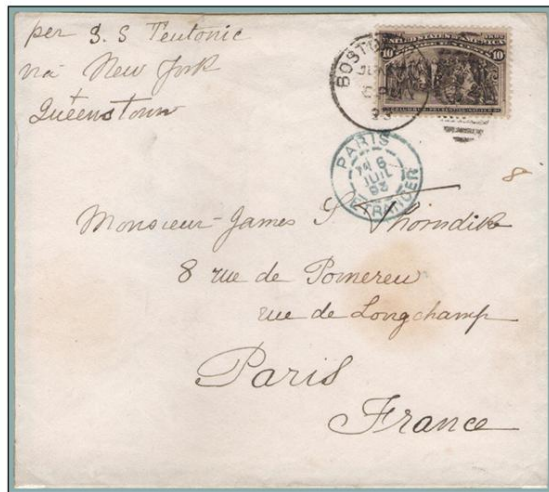 per S. S Teutonic
via New York
Queenstown
UNITED STATES OF AMERICA
10 10
BOSTON
93
PARIS
6
JUIL
93
ETRANGER
8
Monsieur James S Thorndike
8 rue de Pomereu
rue de Longchamp
Paris
France